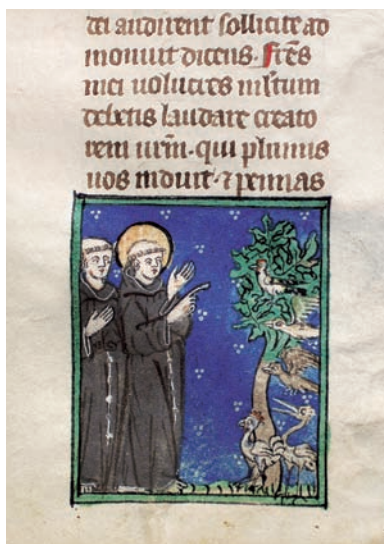 dei audirent sollicite ad
monuit dicens. Fr̄es
mei uolucres ml̄tum
debetis laudare creato
rem ur̄m. qui plumis
uos induit. ⁊ pennas